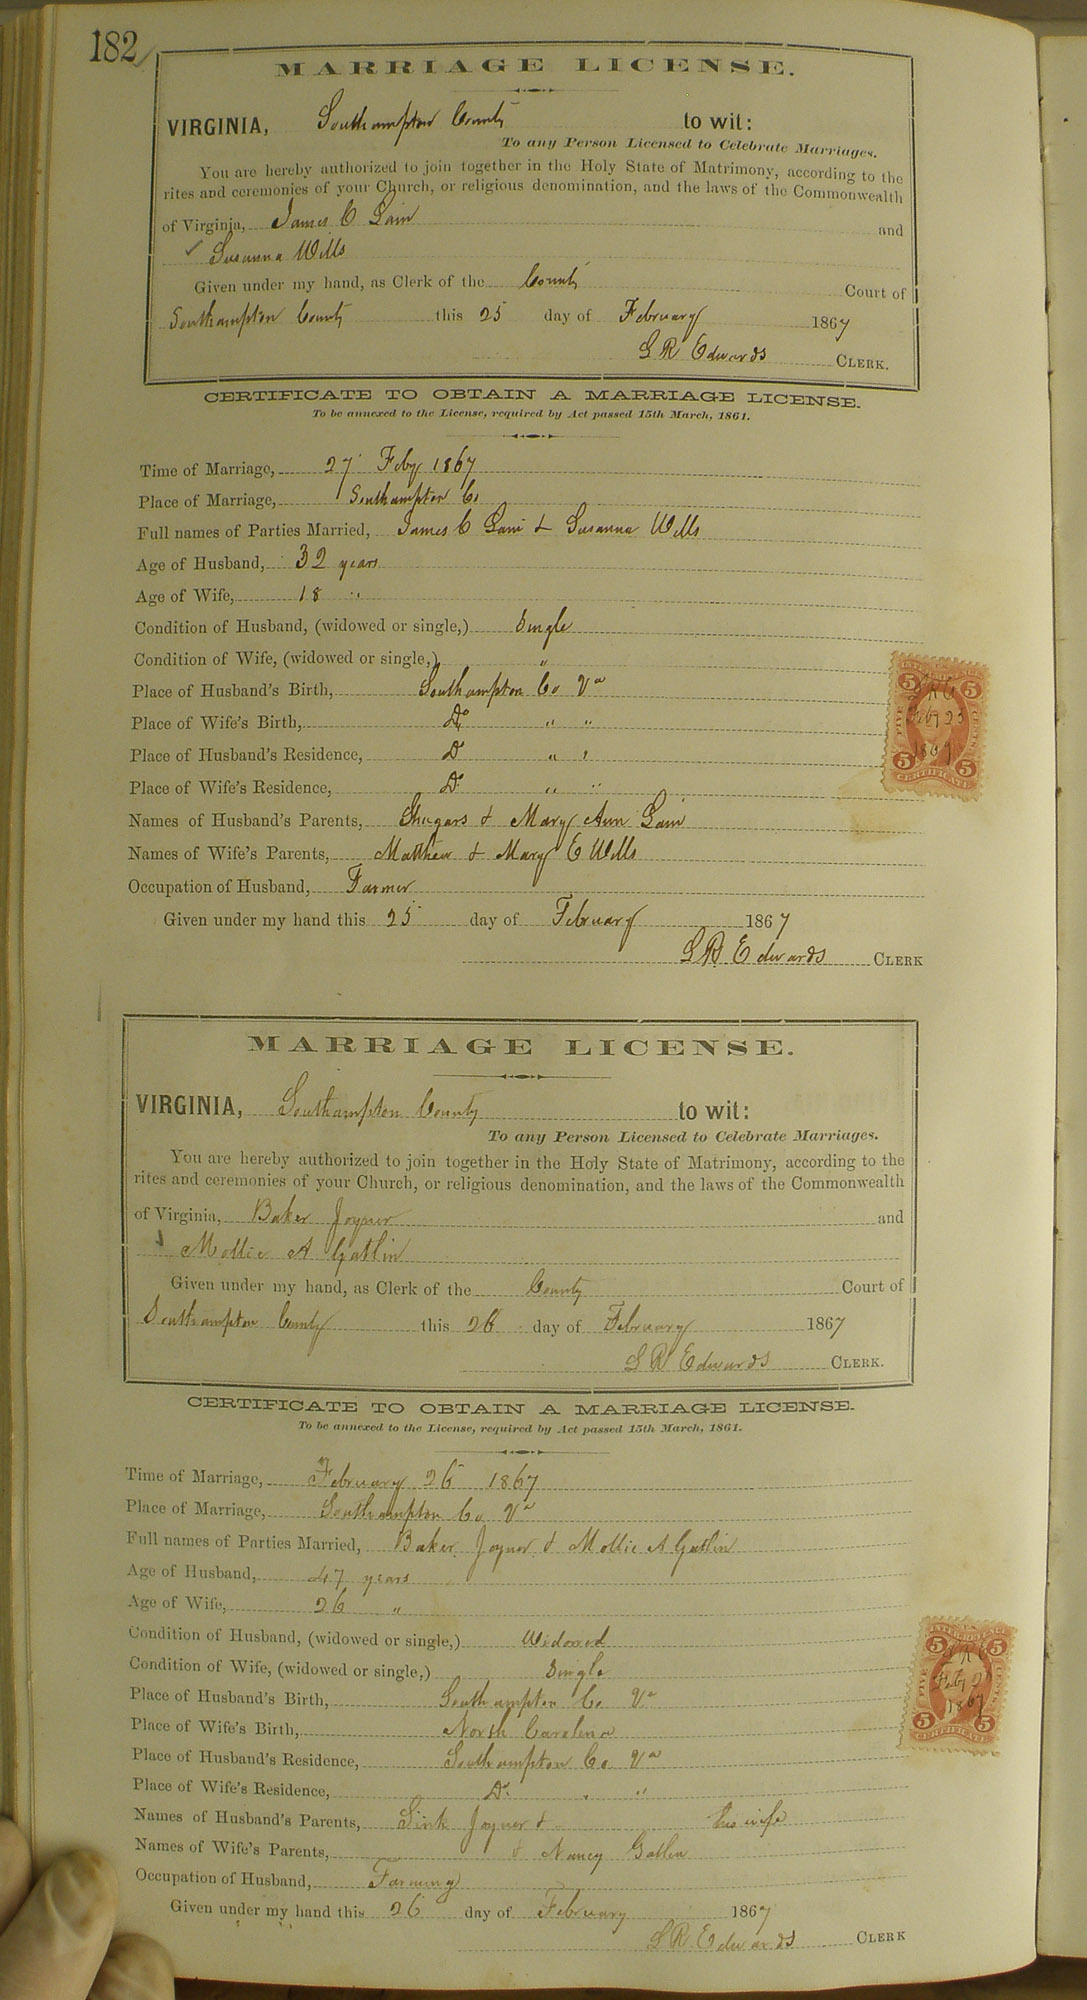 182
MARRIAGE LICENSE.
VIRGINIA, Southampton County to wit:
To any Person Licensed to Celebrate Marriages.
You are hereby authorized to join together in the Holy State of Matrimony, according to the
rites and ceremonies of your Church, or religious denomination, and the laws of the Commonwealth
of Virginia, James C Lain and
Susanna Wills
Given under my hand, as Clerk of the County Court of
Southampton County this 25 day of February 1867
L R Edwards CLERK.
CERTIFICATE TO OBTAIN A MARRIAGE LICENSE.
To be annexed to the License, required by Act passed 15th March, 1861.
Time of Marriage, 27 Feby 1867
Place of Marriage, Southampton Co
Full names of Parties Married, James C Lain & Susanna Wills
Age of Husband, 32 years
Age of Wife, 18 "
Condition of Husband, (widowed or single,) Single
Condition of Wife, (widowed or single,) "
Place of Husband's Birth, Southampton Co Va
Place of Wife's Birth, Do " "
Place of Husband's Residence, Do " "
Place of Wife's Residence, Do " "
Names of Husband's Parents, Shugars & Mary Ann Lain
Names of Wife's Parents, Matthew & Mary E Wills
Occupation of Husband, Farmer
Given under my hand this 25 day of February 1867
L R Edwards CLERK
5 5
FIVE CENTS
5 5
CERTIFICATE
MARRIAGE LICENSE.
VIRGINIA, Southampton County to wit:
To any Person Licensed to Celebrate Marriages.
You are hereby authorized to join together in the Holy State of Matrimony, according to the
rites and ceremonies of your Church, or religious denomination, and the laws of the Commonwealth
of Virginia, Baker Joyner and
Mollie A Gatlin
Given under my hand, as Clerk of the County Court of
Southampton County this 26 day of February 1867
L R Edwards CLERK.
CERTIFICATE TO OBTAIN A MARRIAGE LICENSE.
To be annexed to the License, required by Act passed 15th March, 1861.
Time of Marriage, February 26 1867
Place of Marriage, Southampton Co Va
Full names of Parties Married, Baker Joyner & Mollie A Gatlin
Age of Husband, 47 years
Age of Wife, 26 "
Condition of Husband, (widowed or single,) Widowed
Condition of Wife, (widowed or single,) Single
Place of Husband's Birth, Southampton Co Va
Place of Wife's Birth, North Carolina
Place of Husband's Residence, Southampton Co Va
Place of Wife's Residence, Do " "
Names of Husband's Parents, Joyner & his wife
Names of Wife's Parents, & Nancy Gatlin
Occupation of Husband, Farming
Given under my hand this 26 day of February 1867
L R Edwards CLERK
5 5
FIVE CENTS
1867
5 5
CERTIFICATE